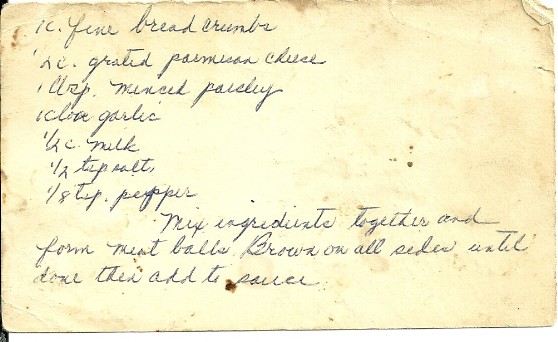 1c. fine bread crumbs
1/2 c. grated parmesan cheese
1 tbsp. minced parsley
1 clove garlic
1/2 c. milk
1/2 tsp salt
1/8 tsp. pepper
Mix ingredients together and
form meat balls Brown on all sides until
done then add to sauce